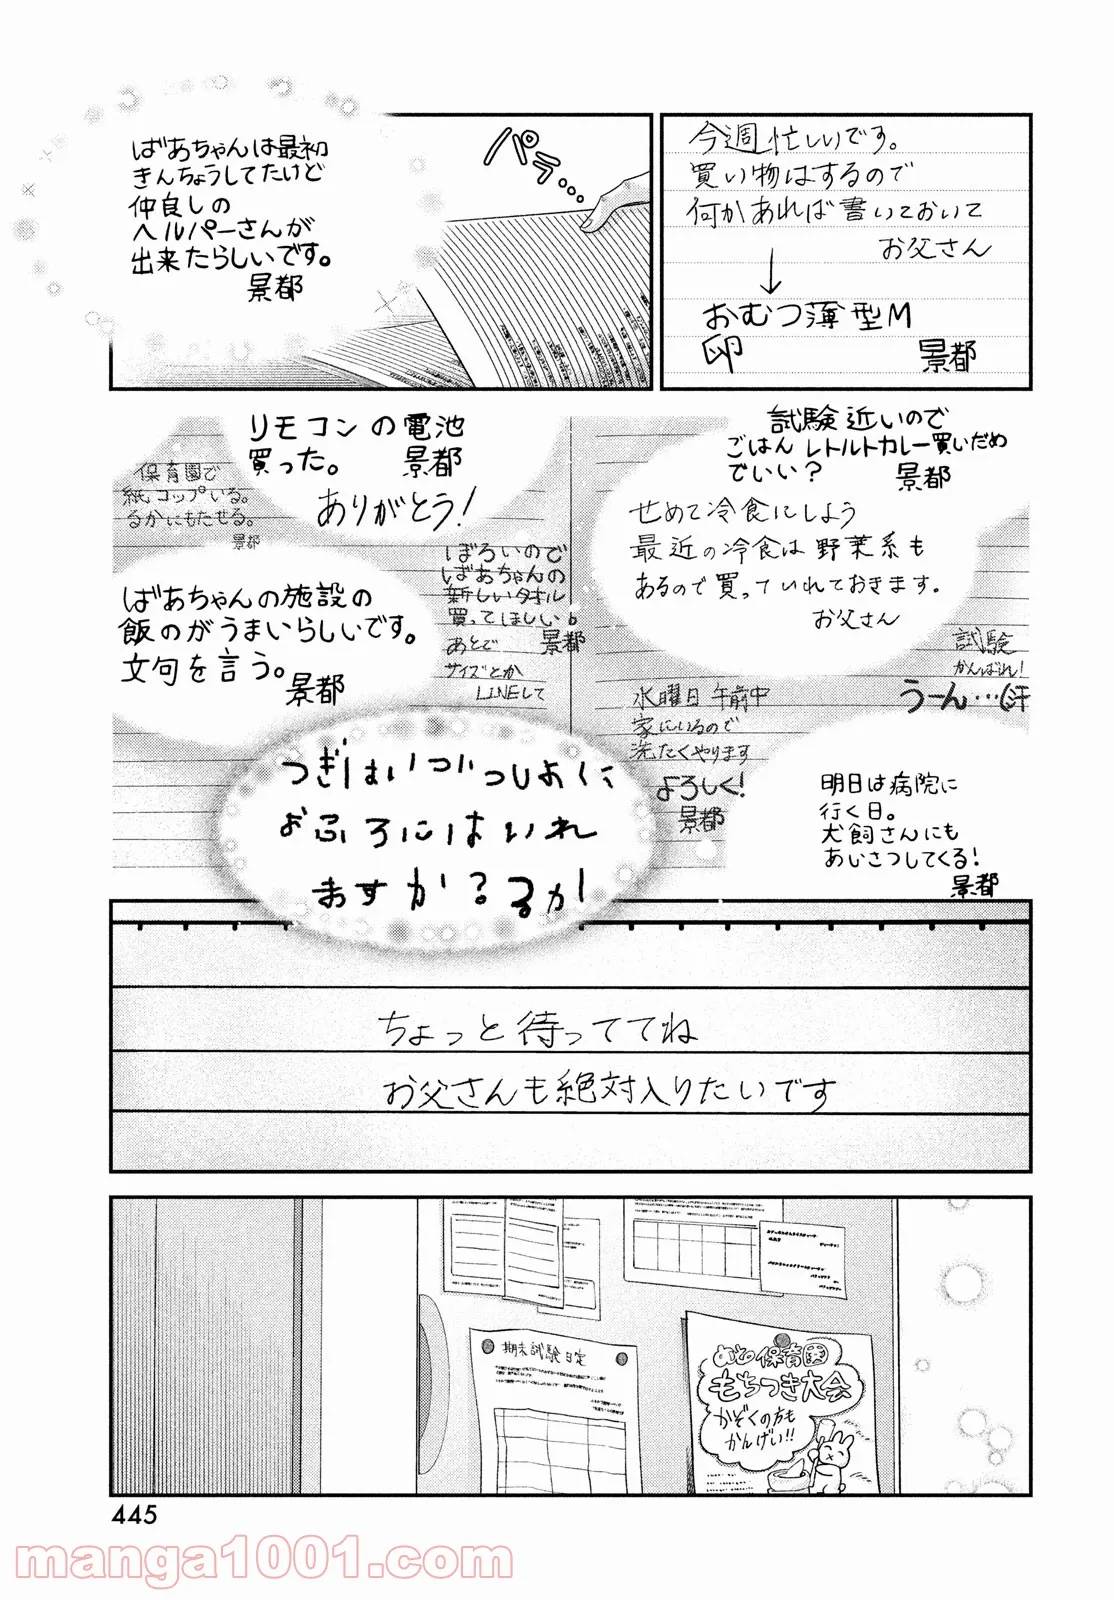 今週忙しいです。
買い物はするので
何かあれば書いておいて
お父さん
↓
おむつ薄型M
卵
景都
パラ…
ばあちゃんは最初
きんちょうしてたけど
仲良しの
ヘルパーさんが
出来たらしいです。
景都
試験近いので
ごはんレトルトカレー買いだめ
でいい？
景都
せめて冷食にしよう
最近の冷食は野菜系も
あるので買っていれておきます。
お父さん
試験
がんばれ！
うーん…(汗
リモコンの電池
買った。
景都
ありがとう！
保育園で
紙コップいる。
るかにもたせる。
景都
ぼろいので
ばあちゃんの
新しいタオル
買ってほしい。
景都
あとで
サイズとか
LINEして
ばあちゃんの施設の
飯のがうまいらしいです。
文句を言う。
景都
水曜日午前中
家にいるので
洗たくやります
よろしく！
景都
明日は病院に
行く日。
犬飼さんにも
あいさつしてくる！
景都
つぎはいついっしょに
おふろにはいれ
ますか？るか
ちょっと待っててね
お父さんも絶対入りたいです
期末試験日定
保育園
もちつき大会
かぞくの方も
かんげい!!
445
manga1001.com